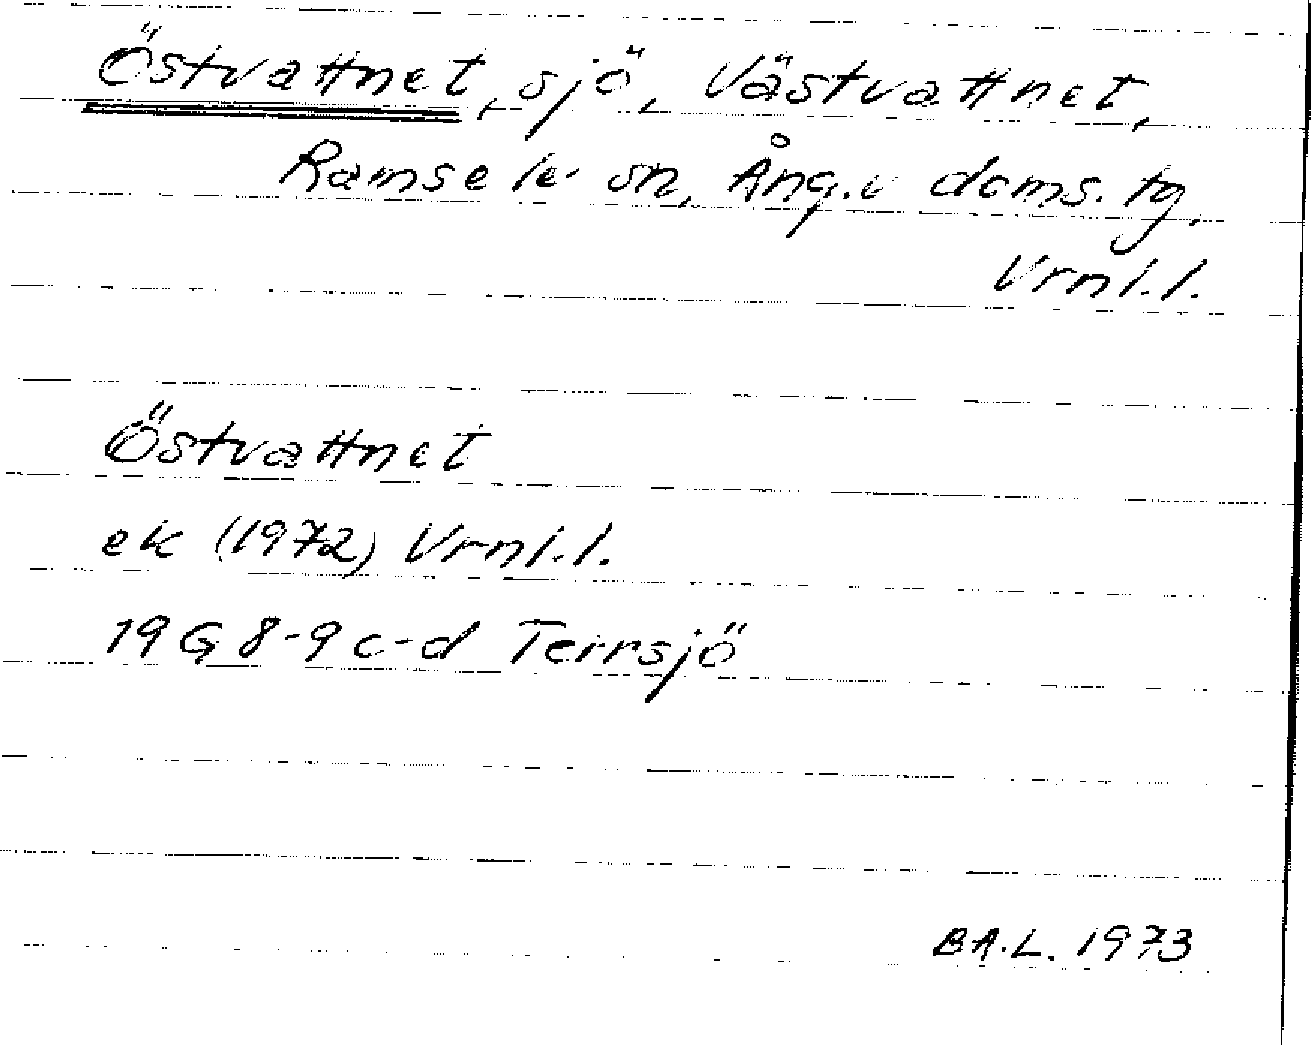 Östvattnet, sjö, Västvattnet,
Ramsele sn, Ång.v doms. tg,
Vrnl.l.
Östvattnet
ek (1972) Vrnl.l.
19 G 8-9 c-d Terrsjö
B.A.L. 1973